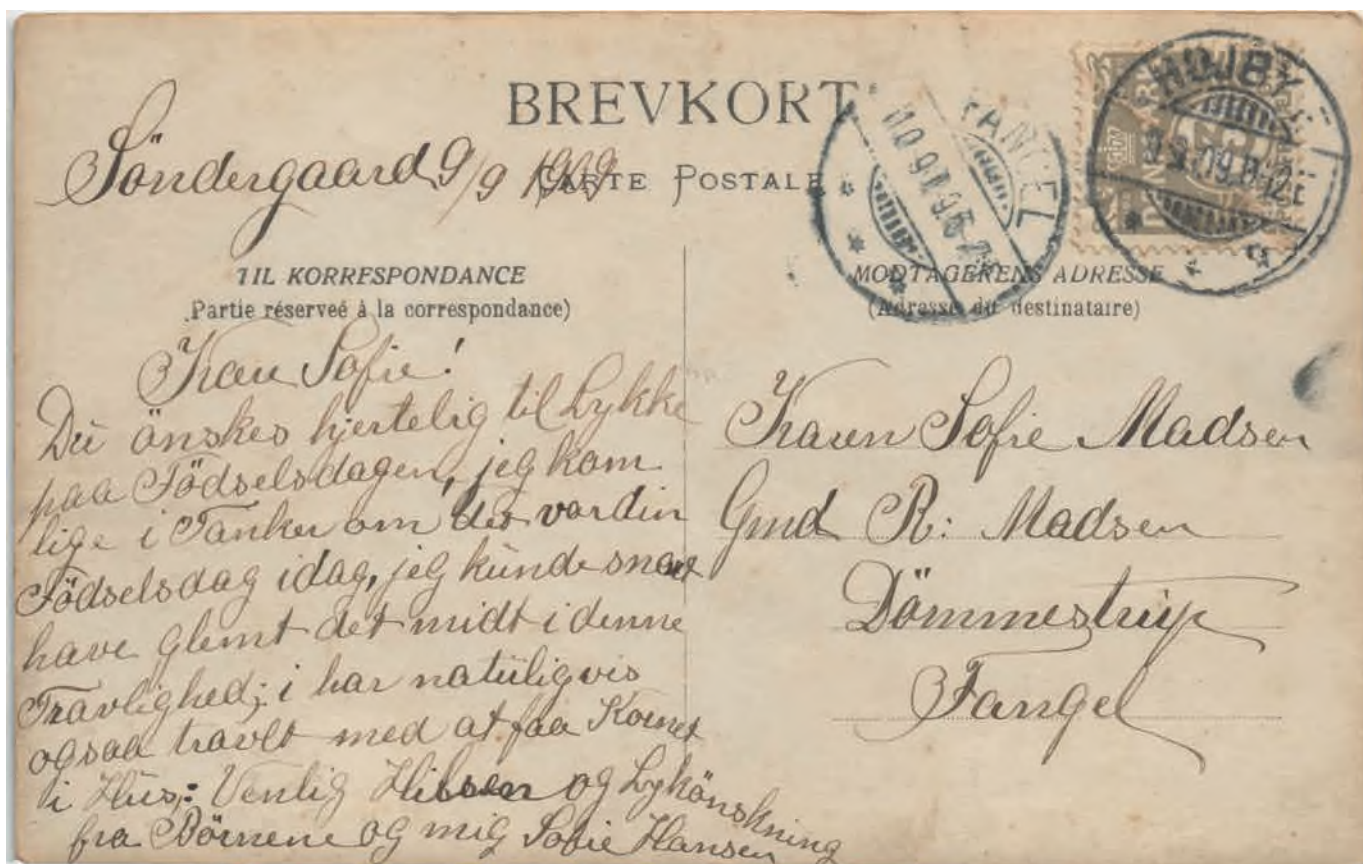 BREVKORT
Söndergaard 9/9 1909
CARTE POSTALE
FANGEL
HØJBY
DANMARK
TIL KORRESPONDANCE
(Partie réserveé à la correspondance)
MODTAGERENS ADRESSE
(Adresse du destinataire)
Sofie!
Du önskes hjertelig til Lykke
paa Födselsdagen, jeg kom
lige i Tanker om det var din
Födselsdag idag, jeg kunde snart
have glemt det midt i denne
Travlighed; i har natuligvis
ogsaa travlt med at faa Kornet
i Hus: Venlig Hilsen og Lykönskning
fra Börnene og mig Sofie Hansen
Karen Sofie Madsen
Gmd R: Madsen
Dömmestrup
Fangel